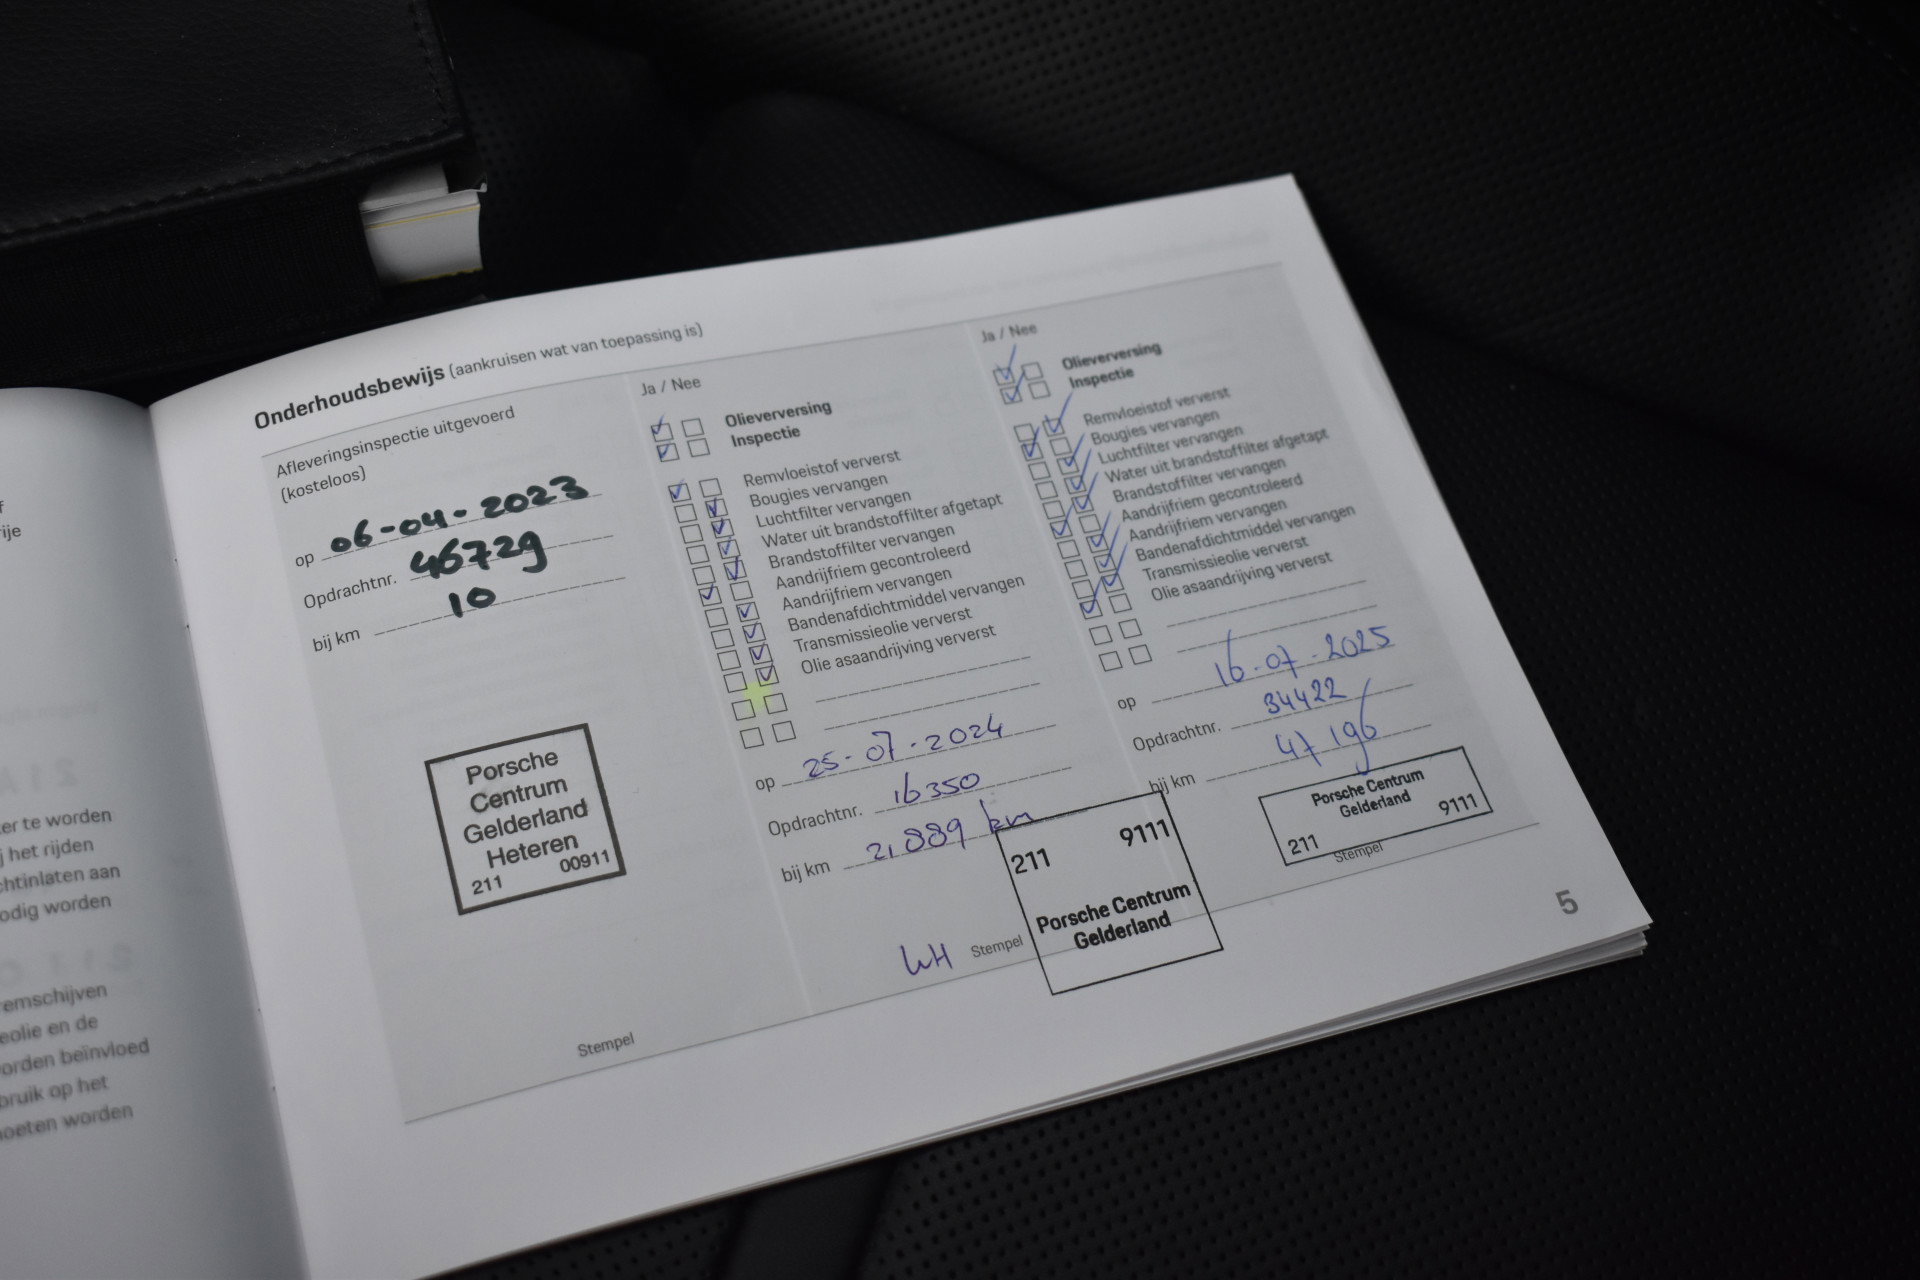 Onderhoudsbewijs (aankruisen wat van toepassing is)
Afleveringsinspectie uitgevoerd
(kosteloos)
op 06-04-2023
Opdrachtnr. 46729
bij km 10
Porsche
Centrum
Gelderland
Heteren
211 00911
Stempel
Ja / Nee
Olieverversing
Inspectie
Remvloeistof ververst
Bougies vervangen
Luchtfilter vervangen
Water uit brandstoffilter afgetapt
Brandstoffilter vervangen
Aandrijfriem gecontroleerd
Aandrijfriem vervangen
Bandenafdichtmiddel vervangen
Transmissieolie ververst
Olie asaandrijving ververst
op 25-07-2024
Opdrachtnr. 16350
bij km 21889 km
WH Stempel
211 9111
Porsche Centrum
Gelderland
Ja / Nee
Olieverversing
Inspectie
Remvloeistof ververst
Bougies vervangen
Luchtfilter vervangen
Water uit brandstoffilter afgetapt
Brandstoffilter vervangen
Aandrijfriem gecontroleerd
Aandrijfriem vervangen
Bandenafdichtmiddel vervangen
Transmissieolie ververst
Olie asaandrijving ververst
op 16-07-2025
Opdrachtnr. 34422
bij km 47196
Porsche Centrum
Gelderland
211 9111
Stempel
5
er te worden
het rijden
chtinlaten aan
odig worden
remschijven
eolie en de
orden beïnvloed
bruik op het
oeten worden